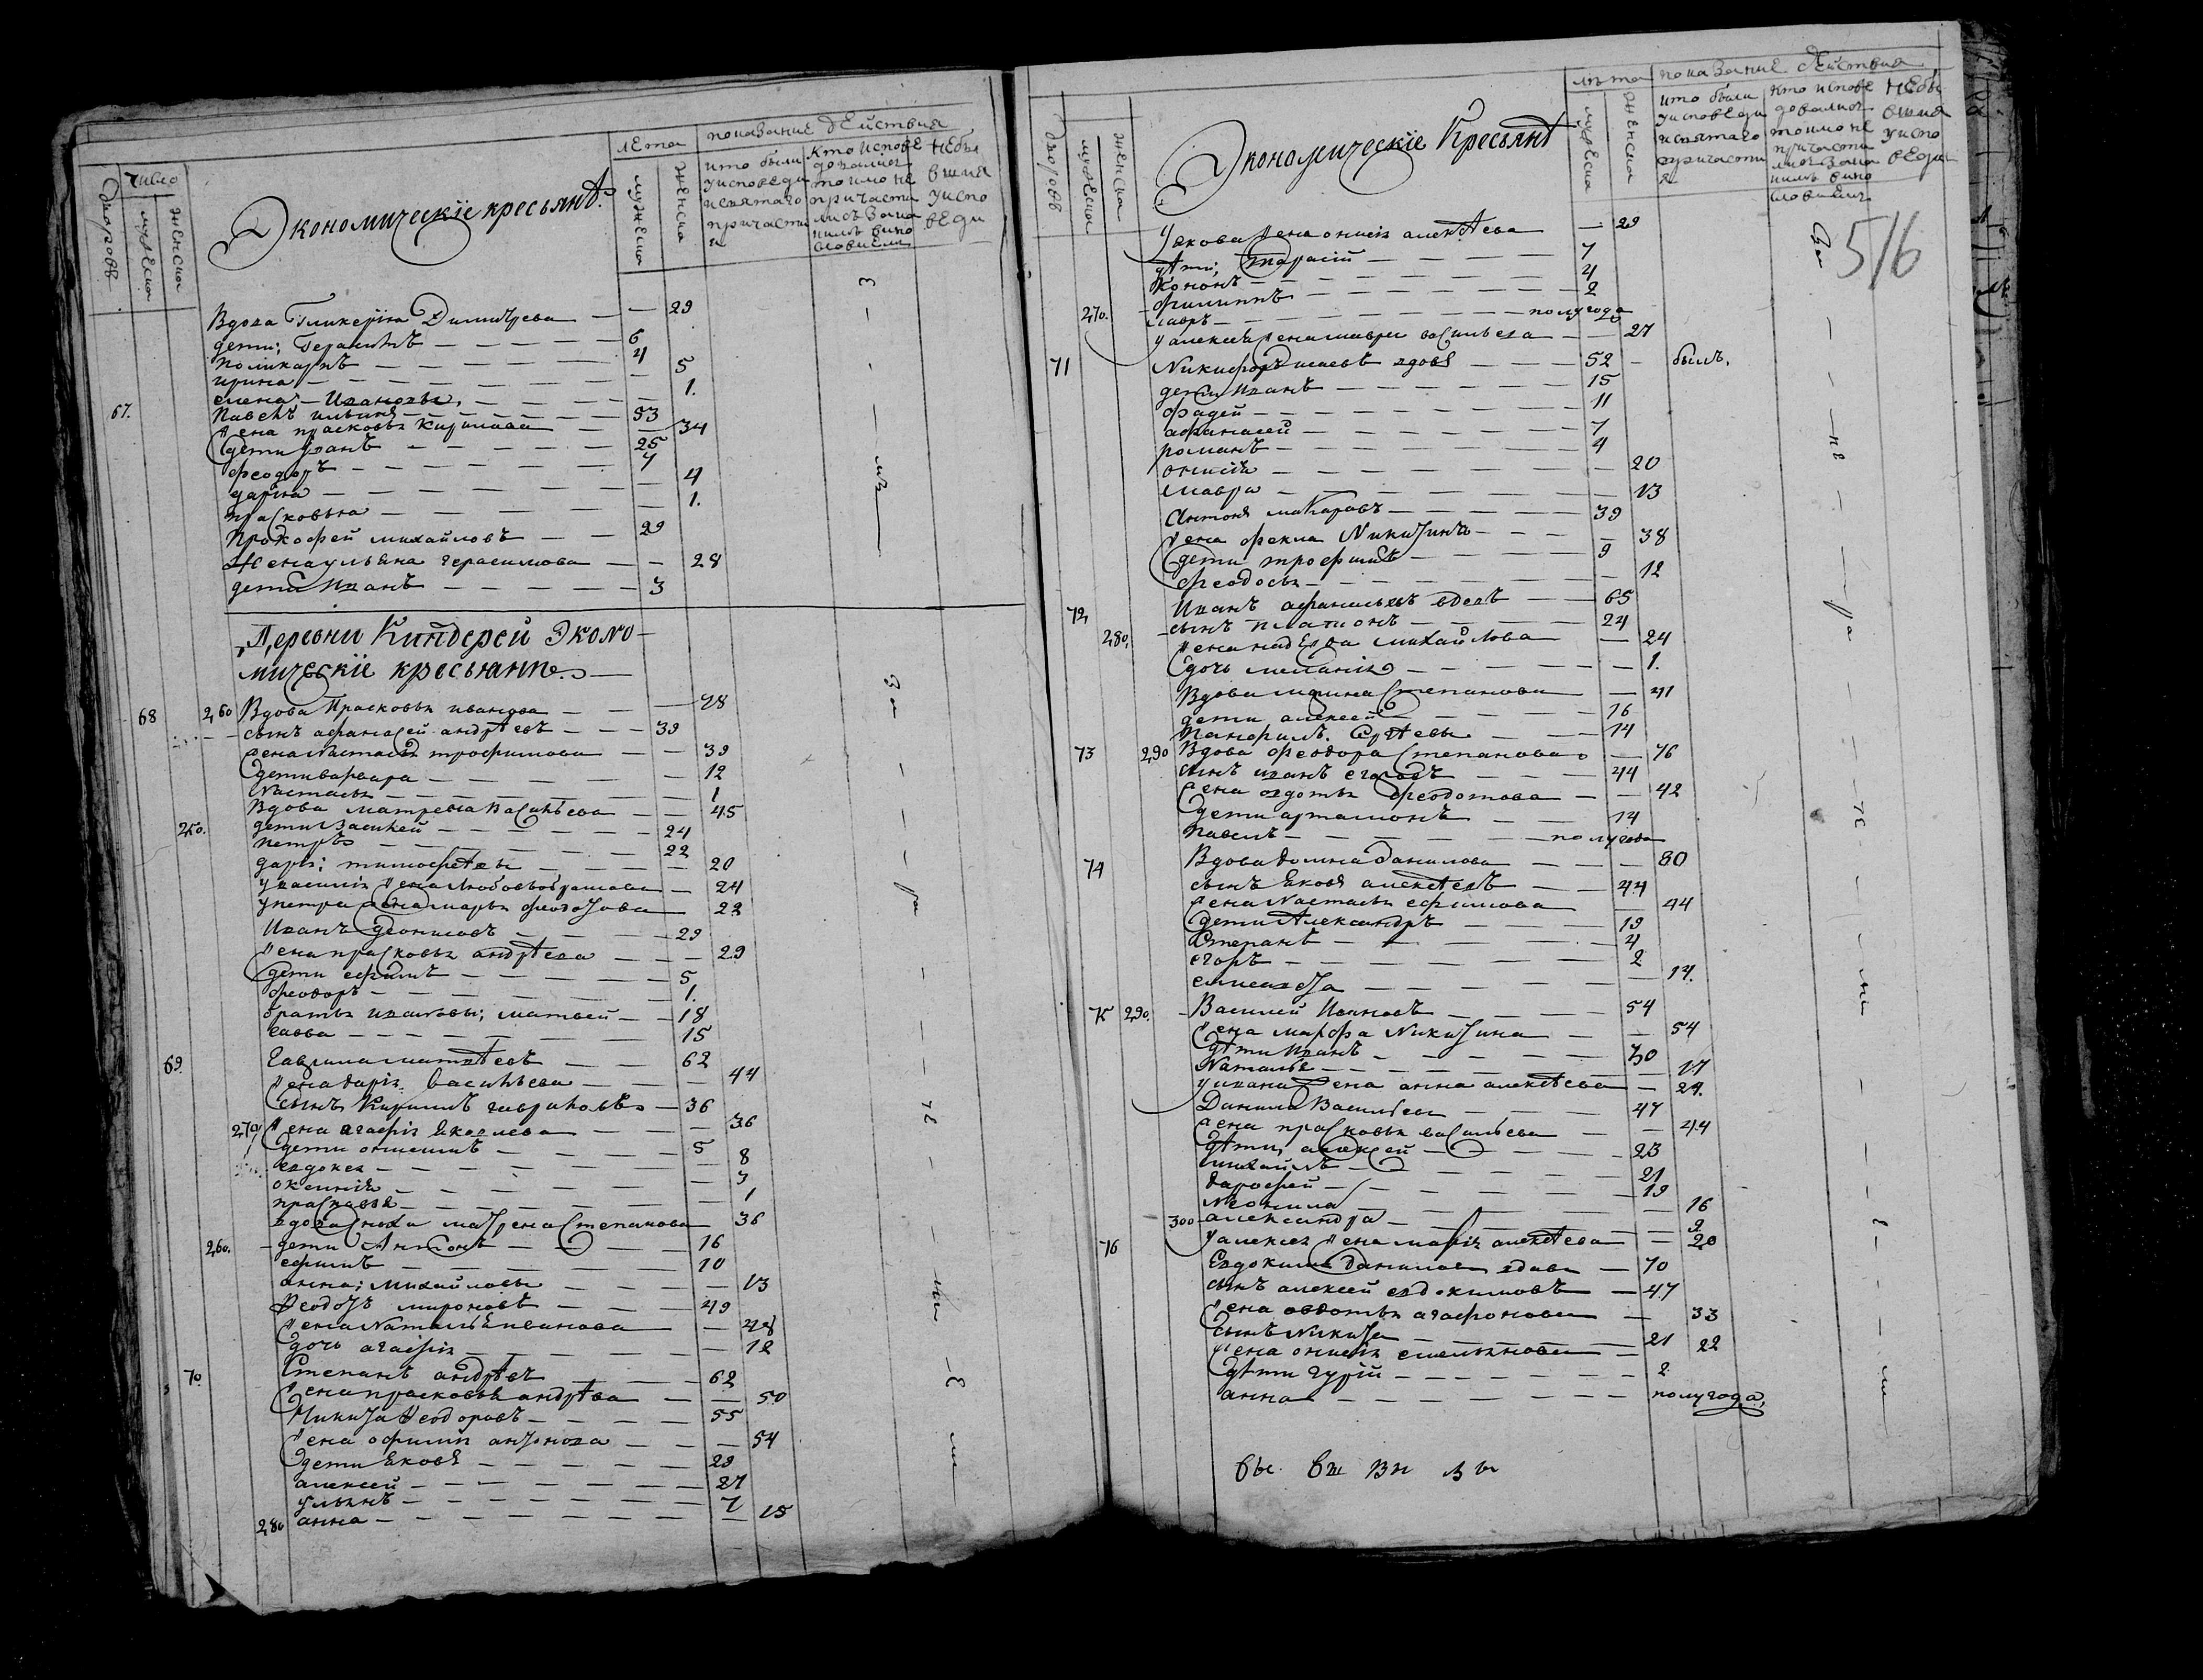 Число
дворовъ
мужеска
женска
Экономическіе кресьянѣ.
лета
мужеска
женска
показание дѣйствия
кто были
у исповеди
и святаго
причасти
я
кто испове
довался
токмо не
причасти
лись
небы
вшия
у испо
веди
Вдова Гликерїя Димитрева — — 29
дети; Герасимъ — 6
Поликарпъ — 4
ирина — 5
елена — Ивановы, — 1.
67. Павелъ ильинъ — 53
жена прасковья Кирилова — 34
дети Иванъ — 25
феодоръ — 7
дарья — 4
прасковья — 1.
Прокофей михайловъ — 29
Жена ульяна герасимова — 28
дети Иванъ — 3
Деревни Киндерей Эконо-
мическіе кресьяне. —
68 260 Вдова Прасковья иванова — 78
сынъ афанасей андрѣевъ — 39
жена Настасья трофимова — 39
дети варвара — 12
Настасья — 1
Вдова матрена Васильева — 45
250. дети Василей — 24
петръ — 22
дарья: тимофѣевы — 20
у василья жена Любовь — 24
у петра жена марья федотова — 22
Иванъ — 29
жена прасковья андрѣева — 29
дети ефимъ — 5
феодоръ — 1.
братья ивановы; матвей — 18
савва — 15
69. Гаврила матвѣевъ — 62
жена дарья Васильева — 44
сынъ Кирилъ гавриловъ — 36
270 жена агафья Яковлева — 36
дети онисимъ — 5
евдокея — 8
оксинія — 3
прасковья — 1
вдова сноха матрена Степанова 36
260. дети Антонъ — 16
ефимъ — 10
анна; михайловы — 13
Федотъ мироновъ — 49
жена Наталья иванова — 48
дочь агафья — 12
70. Степанъ андрѣевъ — 62
жена прасковья андрѣева — 50
Никита Феодоровъ — 55
жена офимія антонова — 54
дети Яковъ — 29
алексей — 27
ульянъ — 7
280 анна — 15
дворовъ
мужеска
женска
Экономическіе Кресьянѣ
лѣта
мужеска
женска
показание дѣйствия
кто были
у исповеди
и святаго
причасти
я
кто испове
довался
токмо не
причасти
небы
вшия
у испо
веди
516
У якова жена онисія алексѣева — 29
дѣти; тарасій — 7
Кононъ — 4
филиппъ — 2
270. лавръ — полугода
у алексея жена мавра васильева — 27
71 Никифоръ исаевъ вдовъ — 52 — былъ.
дети Иванъ — 15
фадей — 11
афанасей — 7
романъ — 4
онисія — 20
мавра — 13
Антонъ макаровъ — 39
жена фекла Никитина — 38
дети трофимъ — 9
феодосья — 12
72, Иванъ афанасьевъ вдовъ — 65
сынъ платонъ — 24
280, жена надежда михайлова — 24
дочь меланія — 1.
Вдова марина Степанова — 41
дети алексей — 16
Панфилъ. Сергѣевы — 14
73 290 Вдова феодора Степанова — 76
сынъ иванъ егоровъ — 44
жена авдотья феодотова — 42
дети артамонъ — 14
Павелъ — полугода
74 Вдова домна Данилова — 80
сынъ Яковъ алексѣевъ — 44
жена Настасья ефимова — 44
дети Александръ — 19
Степанъ — 4
егоръ — 2
елисавета — 14.
75 290. Василей Ивановъ — 54
жена марфа Никитина — 54
дѣти Иванъ — 30
Наталья — 17
у ивана жена анна алексѣева — 24.
Данила Васильевъ — 47
жена прасковья васильева — 44
дѣти, алексей — 23
михайлъ — 21
дарофей — 19
Неонила — 16
300 александра — 2
у алексея жена марія алексѣева — 20
76 Евдокимъ Даниловъ вдовъ — 70
сынъ алексей евдокимовъ — 47
жена авдотья агафонова — 33
сынъ Никита — 21
жена онисія емельянова — 22
дѣти гурій — 2
анна — полугода,